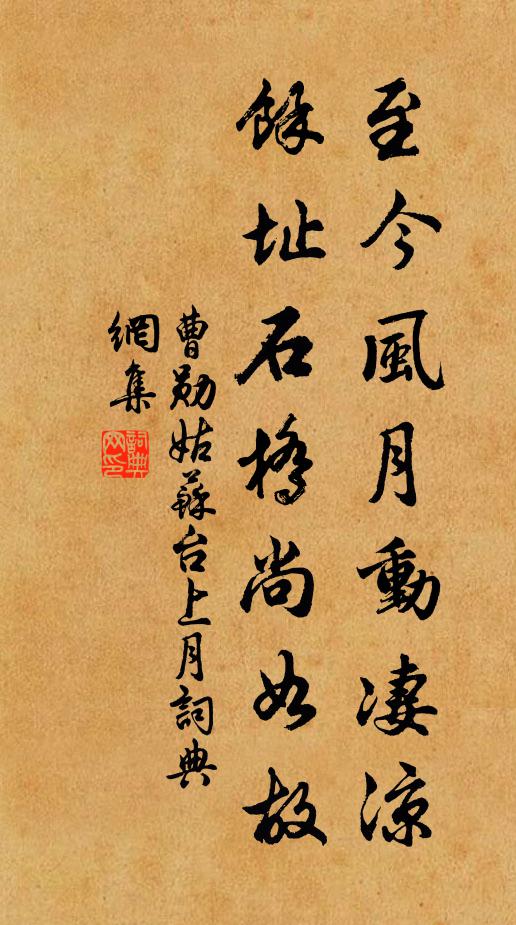 至今風月動凄涼
餘址石橋尚如故
曹勛姑蘇台上月詞典
網集
詞典
网印